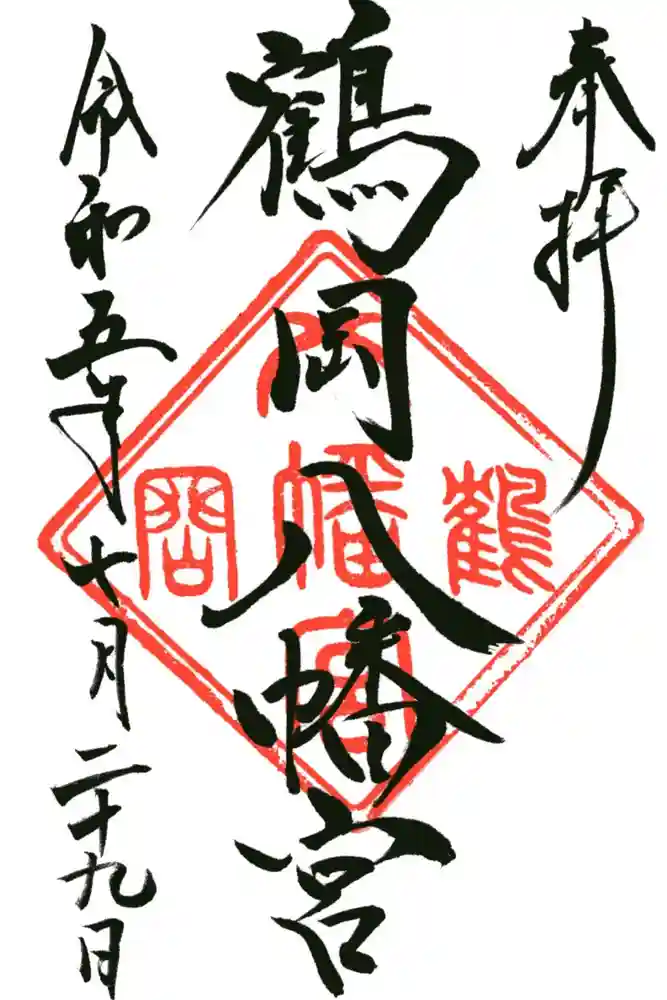 奉拝
鶴岡八幡宮
鶴岡
八幡宮
令和五年十月二十九日